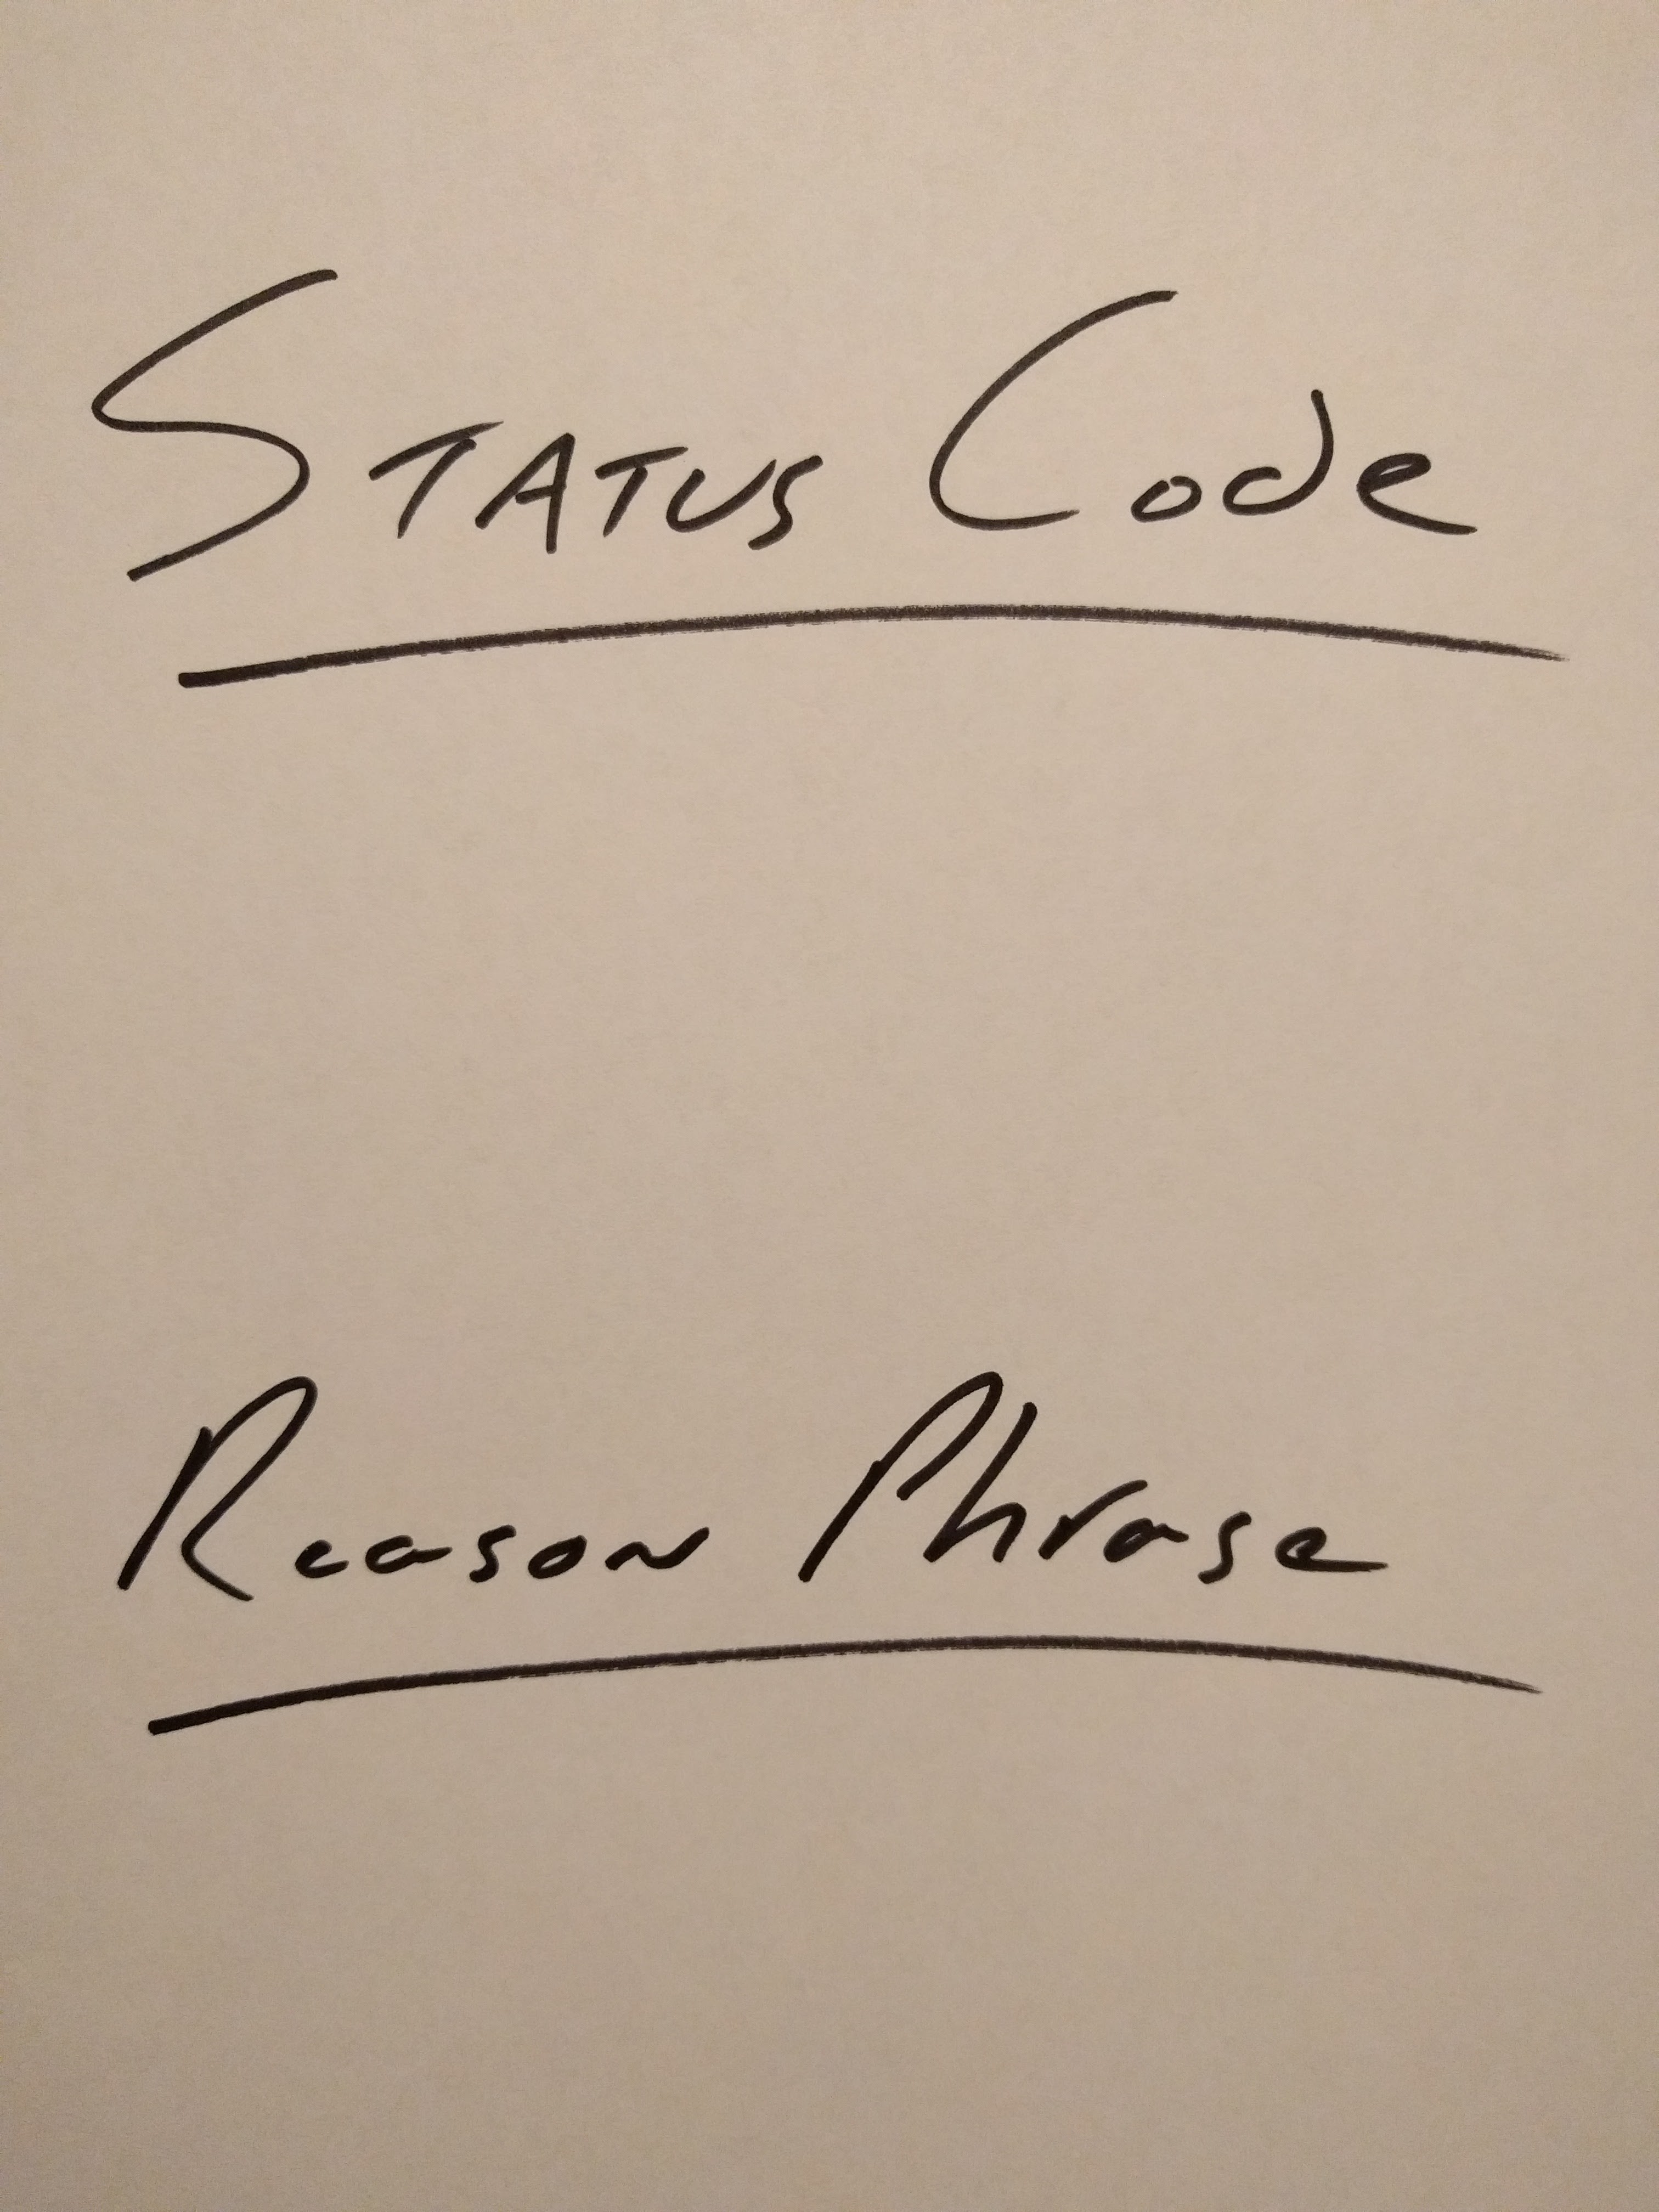 Status Code
Reason Phrase